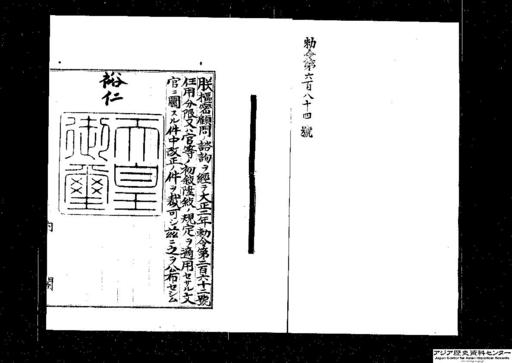 勅令第六百八十四號
朕樞密顧問ノ諮詢ヲ經テ大正二年勅令第二百六十二號
任用分限又ハ官等ノ初敍陞敍ノ規定ヲ適用セサル文
官ニ關スル件中改正ノ件ヲ裁可シ茲ニ之ヲ公布セシム
裕仁
天皇御璽
内閣
アジア歴史資料センター
Japan Center for Asian Historical Records